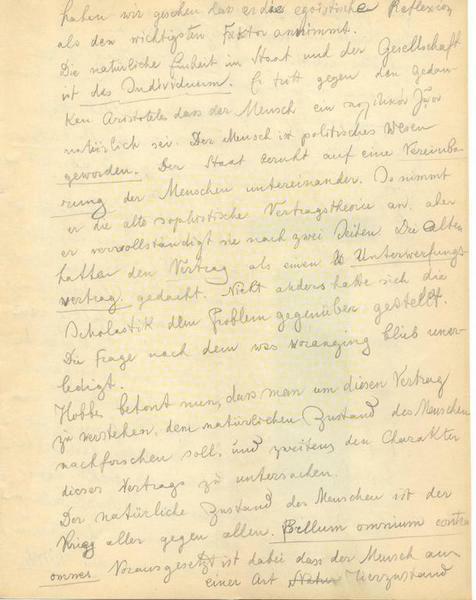 haben wir gesehen dass er die egoistische Reflexion
als den wichtigsten Faktor annimmt.
Die natürliche Einheit im Staat und der Gesellschaft
ist das Individuum. Er tritt gegen den Gedan-
ken Aristoteles dass der Mensch ein πολιτικόν ζῷον
natürlich sei. Der Mensch ist politisches Wesen
geworden. Der Staat beruht auf eine Vereinba-
rung der Menschen untereinander. So nimmt
er die alte sophistische Vertragstheorie an, aber
er vervollständigt sie nach zwei Seiten. Die Alten
hatten den Vertrag als einen Unterwerfungs-
vertrag gedacht. Nicht anders hatte sich die
Scholastik dem Problem gegenüber gestellt.
Die Frage nach dem was voranging blieb uner-
ledigt.
Hobbes betont nun, dass man um diesen Vertrag
zu verstehen, dem natürlichen Zustand des Menschen
nachforschen soll, und zweitens den Charakter
dieses Vertrags zu untersuchen.
Der natürliche Zustand des Menschen ist der
Krieg aller gegen allen. Bellum omnium contra
omnes. Vorausgesetzt ist dabei dass der Mensch aus
einer Art Tierzustand